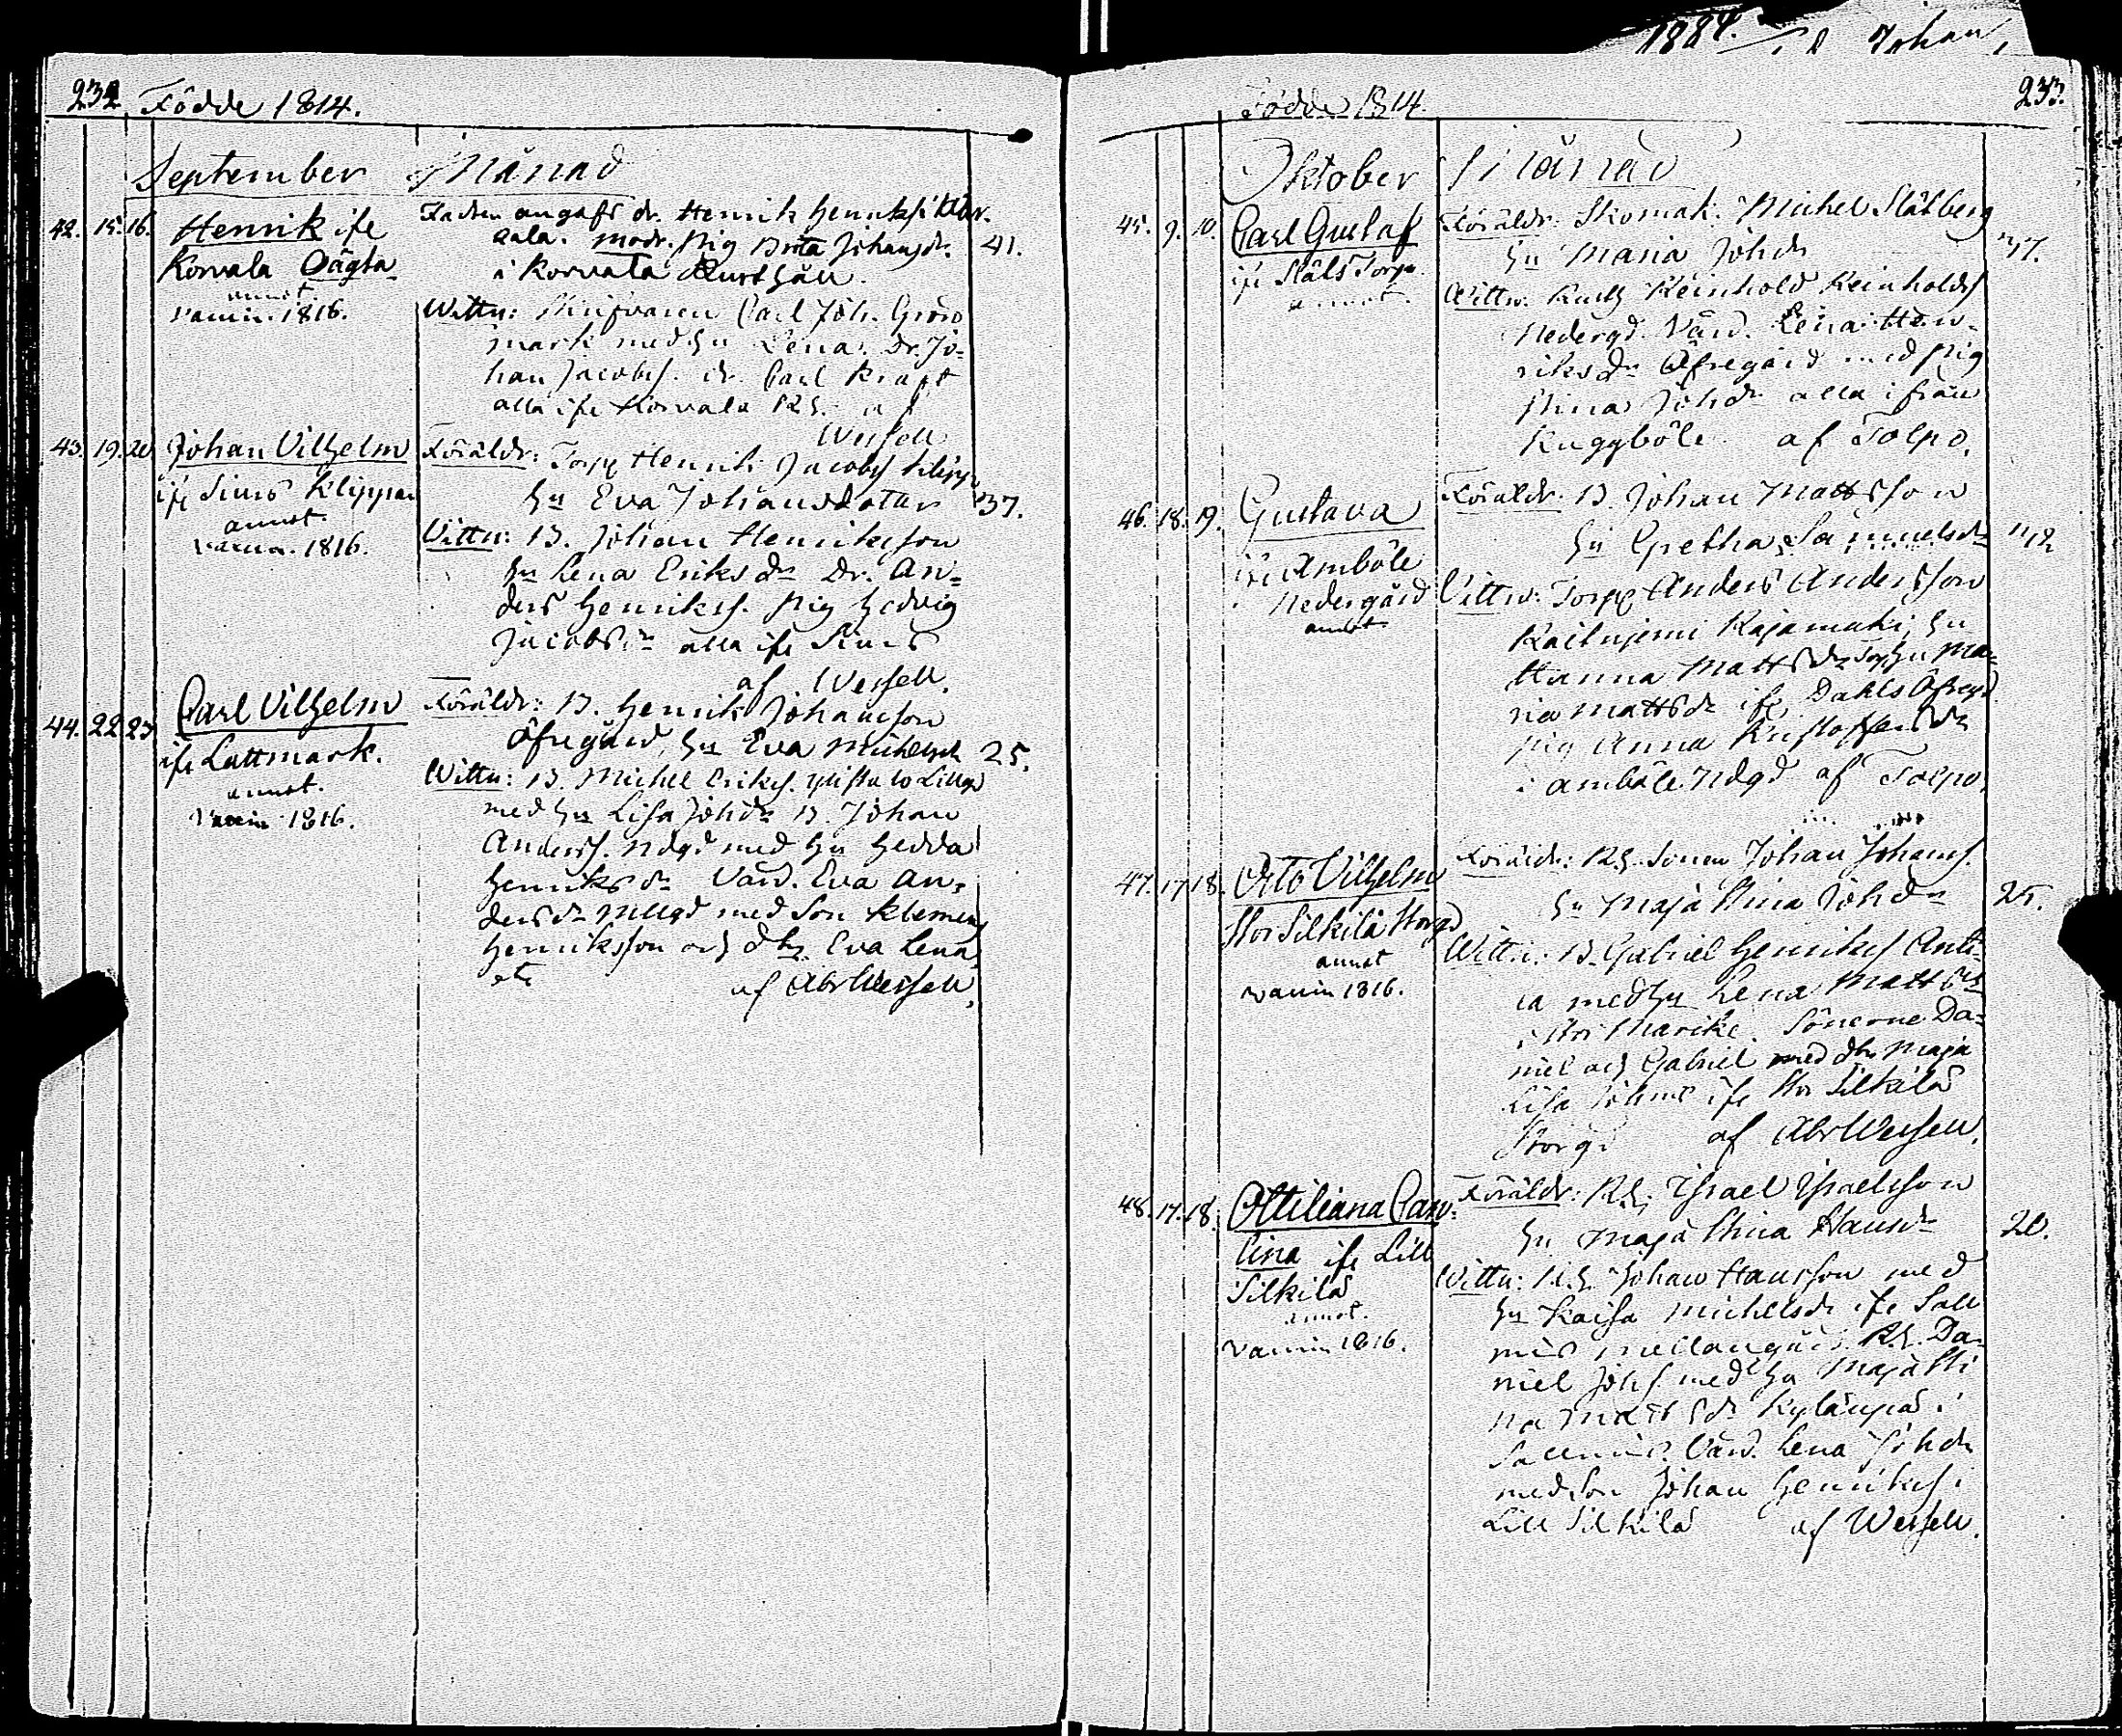 1884. Johan
232 Födde 1814.
September Månad
42. 15. 16. Henrik ifr
Korvala Oägta
annot.
vaccin. 1816.
Fadren angafs dr. Henrik Henrikss i
gala. modr. pig Brita Johansdr. 41.
i Korvala
Wittn: Carl Joh. Grön
mark med hu Lena. Dr. Jo=
han Jacobss. dr. Carl Kraft
alla ifr Korvala af
Wessell
43. 19. 20 Johan Vilhelm
ifr Siurs Klippan
annot.
vaccin. 1816.
Föräldr: Torp Henrik Jacobss
hu Eva Johansdotter 37.
Vittn: B. Johan Henriksson
hu Lena Eriks dr Dr. An=
ders Henrikss. pig Hedvig
Jacobsdr alla ifr Siurs
af Wessell.
44. 22 23 Carl Vilhelm
ifr Lattmark.
annot.
vaccin 1816.
Föräldr: B. Henrik Johansson
Öfregård, hu Eva Michelsdr 25.
Wittn: B. Michel Erikss.
med hu Lisa Johdr B. Johan
Anderss. Ndgd med hu Hedda
Henriksdr Värd. Eva An=
dersdr Mllgd med Son Klemens
Henriksson och dtr. Eva Lena
af Abr Wessell.
Födde 1814. 233.
Oktober Månad
45. 9. 10. Carl Gustaf
ifr Ståls Torp.
annot.
Föräldr: Skomak. Michel Stålberg
hu Maria Johdr 37.
Wittn: Reinhold Reinholds
Nedergd. Värd. Lena Hen=
riksdr Öfregård med pig
Stina Johdr alla ifrån
Kuggböle af Tolpo.
46. 18. 19. Gustava
ifr Amböle
Nedergård
annot.
Föräldr. B. Johan Mattsson
hu Gretha Samuelsdr 42
Vittn: Torp Anders Andersson
Kajamäki, hu
Hanna Mattsdr Torp hu Ma=
ria Mattsdr ifr Dahls Öfregd
pig Anna Kristoffersdr
i Amböle Ndgd af Tolpo.
47. 17 18. Otto Vilhelm
Stor Silkilä Storgd
annot
vaccin 1816.
Föräldr: Rh. Sonen Johan Johanss.
hu Maja Stina Johdr 25.
Wittn: B. Gabriel Henrikss Anti=
la med hu Lena Mattsdr
i Stor Marike. Sönerne Da=
niel och Gabriel med dtr Maja
Lisa Johans ifr Stor Silkilä
Storgd af Abr Wessell.
48. 17. 18. Ottiliana Caro=
lina ifr Lill
Silkilä
annot.
vaccin 1816.
Föräldr: Rh. Israel Israelsson
hu Maja Stina Hansdr 20.
Wittn: Rh. Johan Hansson med
hu Kaisa Michelsdr ifr Sall
mis mellangård. Rh. Da=
niel Johss. med hu Maja Sti
na Mattsdr Kylänpä i
Sallmis. Värd. Lena Johdr
med Son Johan Henrikss i
Lill Silkilä af Wessell.